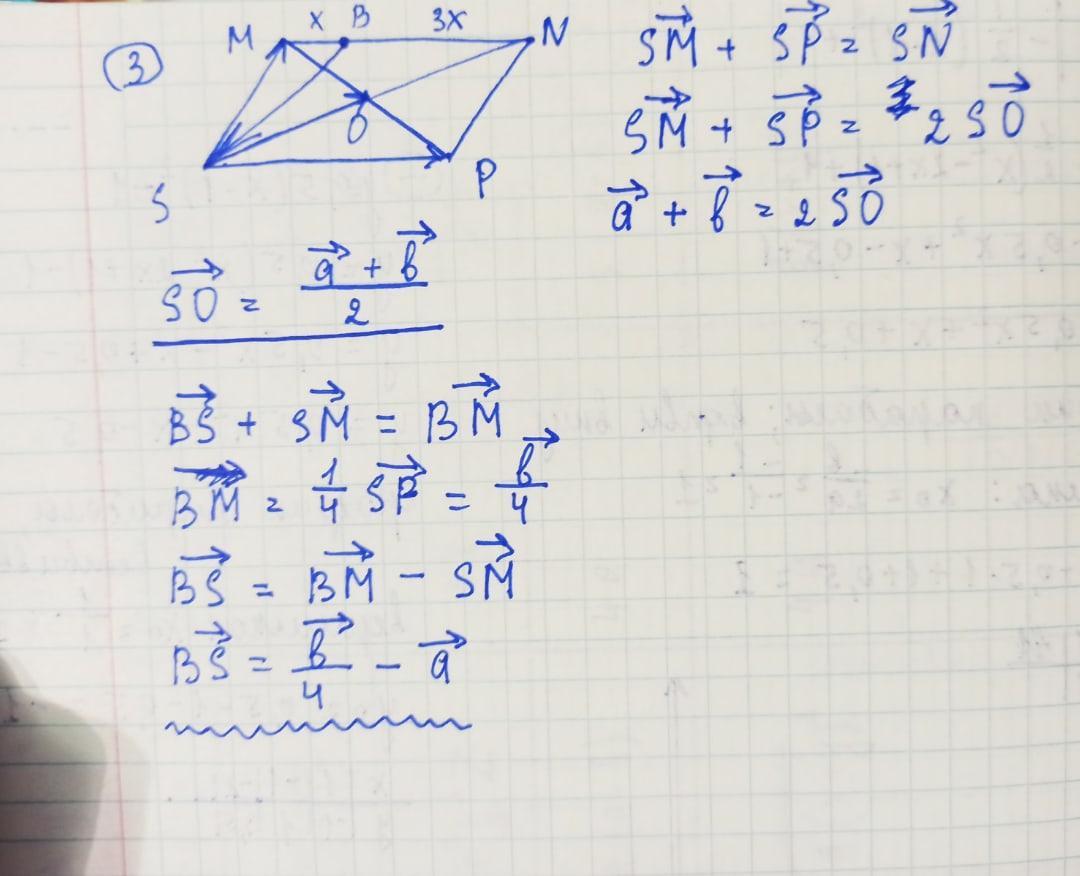 3
M x B 3x N
O
S P
SM⃗ + SP⃗ = SN⃗
SM⃗ + SP⃗ = 2 SO⃗
a⃗ + b⃗ = 2 SO⃗
SO⃗ = (a⃗ + b⃗)/2
BS⃗ + SM⃗ = BM⃗
BM⃗ = 1/4 SP⃗ = b⃗/4
BS⃗ = BM⃗ - SM⃗
BS⃗ = b⃗/4 - a⃗